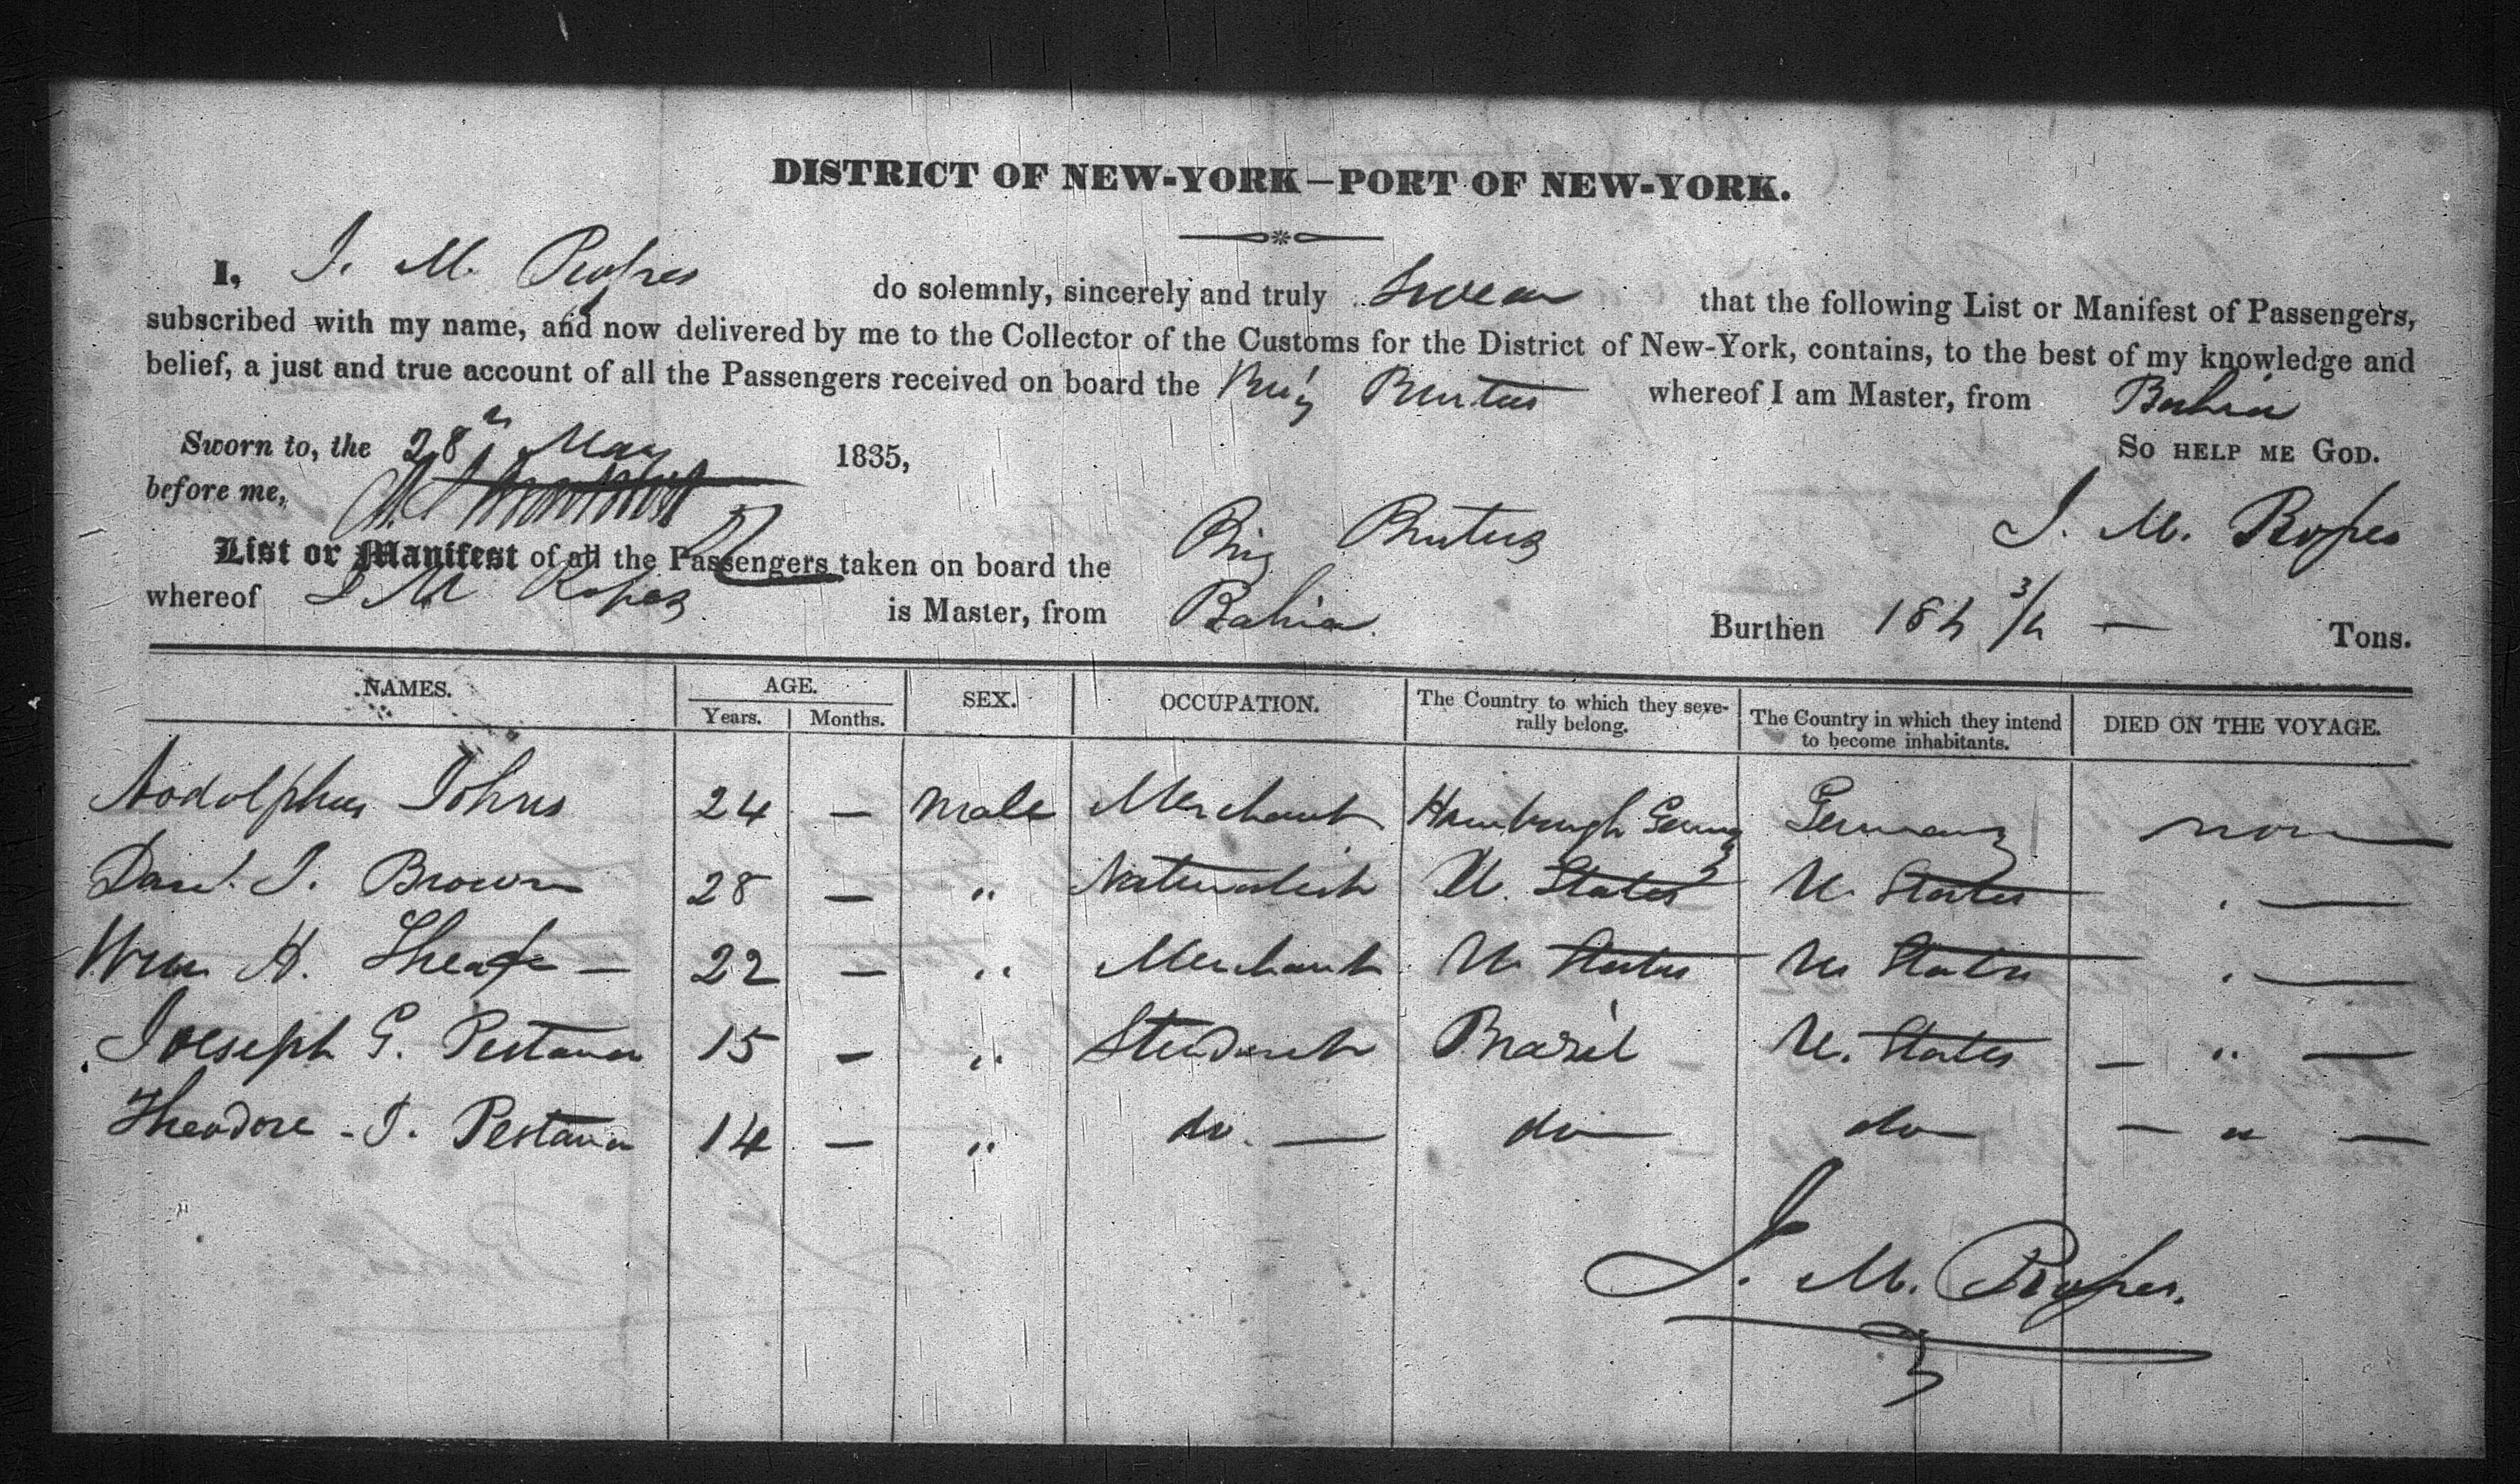 DISTRICT OF NEW-YORK—PORT OF NEW-YORK.
I, J. M. Ropes do solemnly, sincerely and truly Swear that the following List or Manifest of Passengers,
subscribed with my name, and now delivered by me to the Collector of the Customs for the District of New-York, contains, to the best of my knowledge and
belief, a just and true account of all the Passengers received on board the Brig Brutus whereof I am Master, from Bahia
Sworn to, the 28th May 1835, So help me God.
before me, J. M. Ropes
List or Manifest of all the Passengers taken on board the Brig Brutus
whereof J M Ropes is Master, from Bahia. Burthen 184 3/4 — Tons.
NAMES. AGE. Years. Months. SEX. OCCUPATION. The Country to which they severally belong. The Country in which they intend to become inhabitants. DIED ON THE VOYAGE.
Aodolphus Johns 24 — male Merchant Hamburgh Germy Germany none
Danl. J. Brown 28 — " Naturalist U. States U. States " —
Wm H. — 22 — " Merchant U States U States " —
Joeseph G. Pestana 15 — " Student Brazil U. States — " —
Theodore - J. Pestana 14 — " do. — do — do — " —
J. M. Ropes.